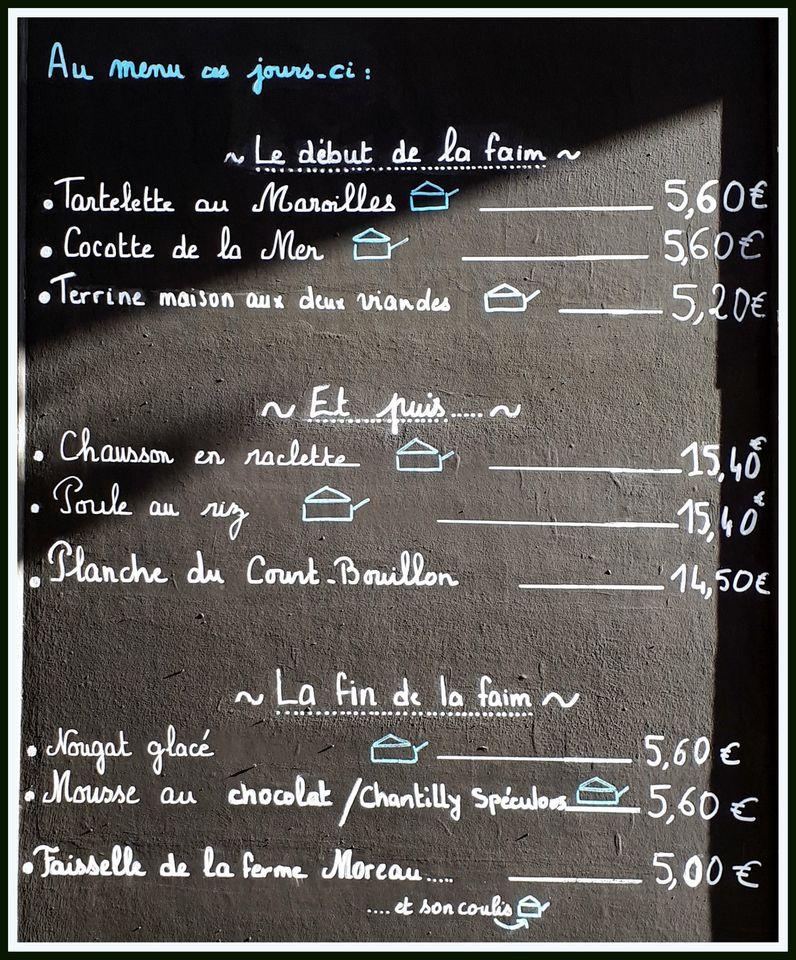 Au menu ces jours-ci :
~ Le début de la faim ~
• Tartelette au Maroilles 5,60€
• Cocotte de la Mer 5,60€
• Terrine maison aux deux viandes 5,20€
~ Et puis..... ~
• Chausson en raclette 15,40€
• Poule au riz 15,40€
• Planche du Court-Bouillon 14,50€
~ La fin de la faim ~
• Nougat glacé 5,60 €
• Mousse au chocolat / Chantilly Spéculoos 5,60 €
• Faisselle de la ferme Moreau..... 5,00 €
.... et son coulis